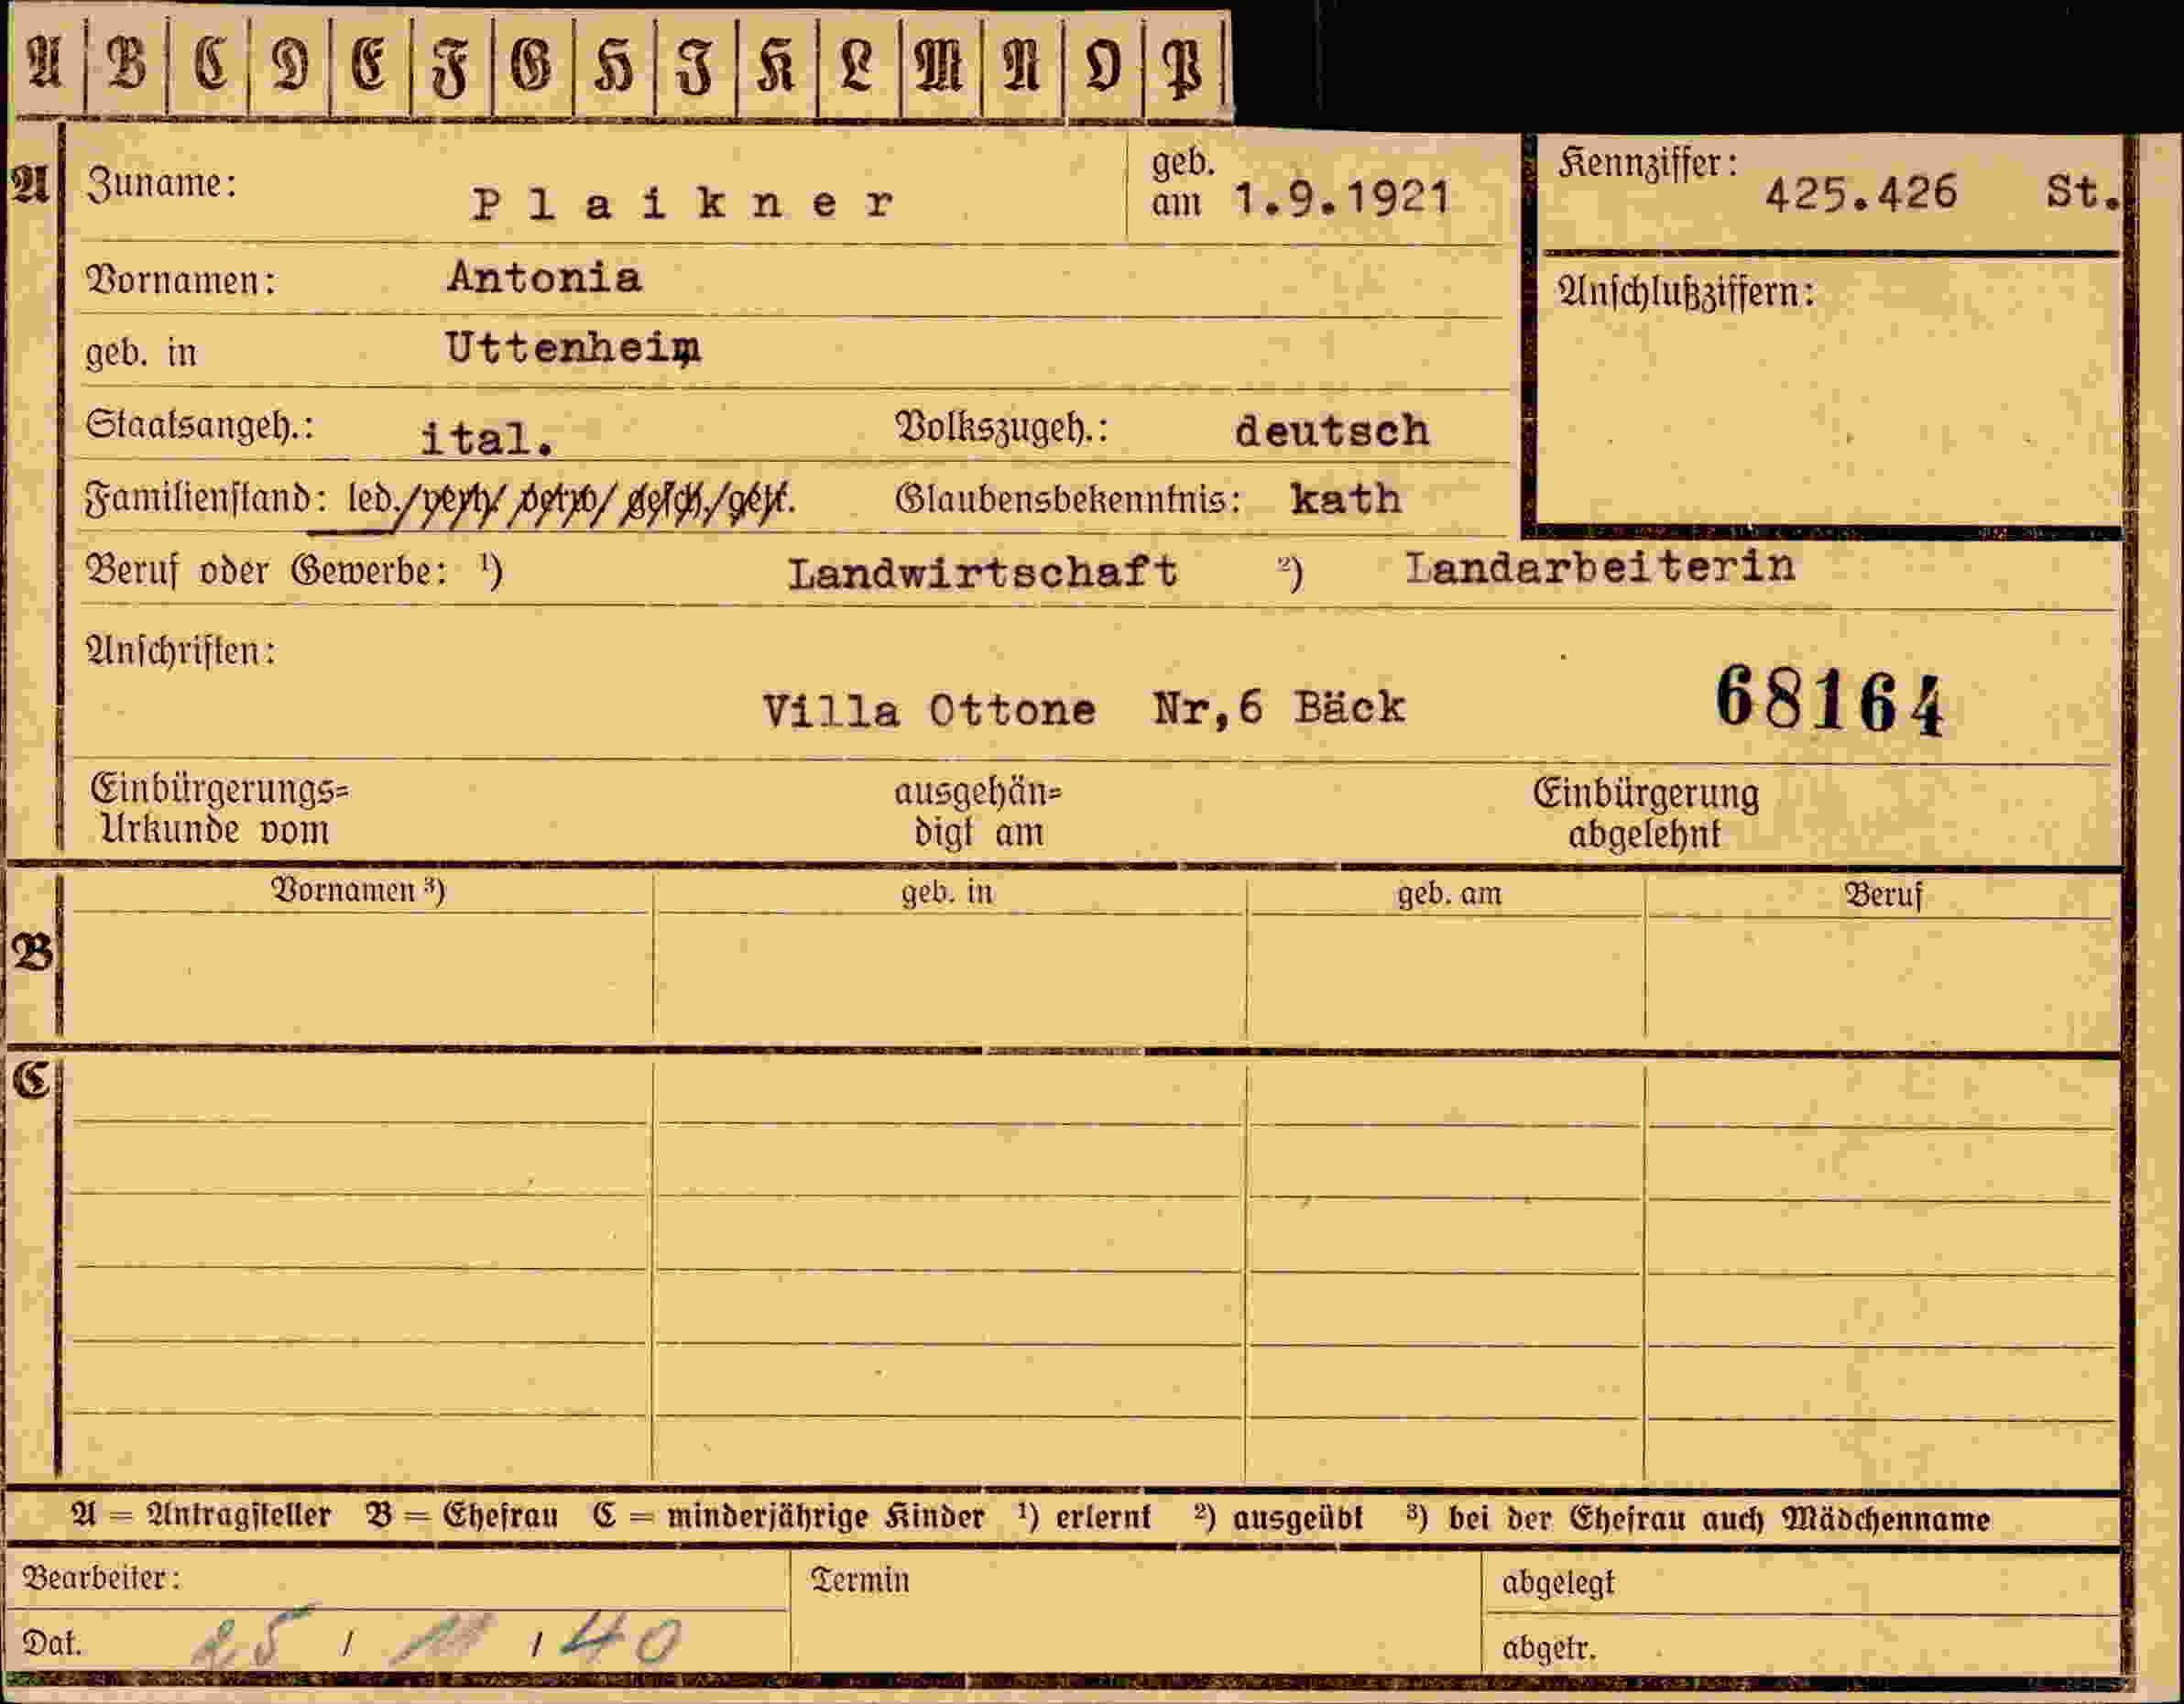 A B C D E F G H I K L M N O P
A Zuname: Plaikner geb. am 1.9.1921 Kennziffer: 425.426 St.
Vornamen: Antonia Anschlußziffern:
geb. in Uttenheim
Staatsangeh.: ital. Volkszugeh.: deutsch
Familienstand: led./verh/ verw/ gesch./get. Glaubensbekenntnis: kath
Beruf oder Gewerbe: ¹) Landwirtschaft ²) Landarbeiterin
Anschriften:
Villa Ottone Nr,6 Bäck 68164
Einbürgerungs= ausgehän= Einbürgerung
Urkunde vom digt am abgelehnt
Vornamen ³) geb. in geb. am Beruf
B
C
A = Antragsteller B = Ehefrau C = minderjährige Kinder ¹) erlernt ²) ausgeübt ³) bei der Ehefrau auch Mädchenname
Bearbeiter: Termin abgelegt
Dat. 25 / 11 / 40 abgetr.